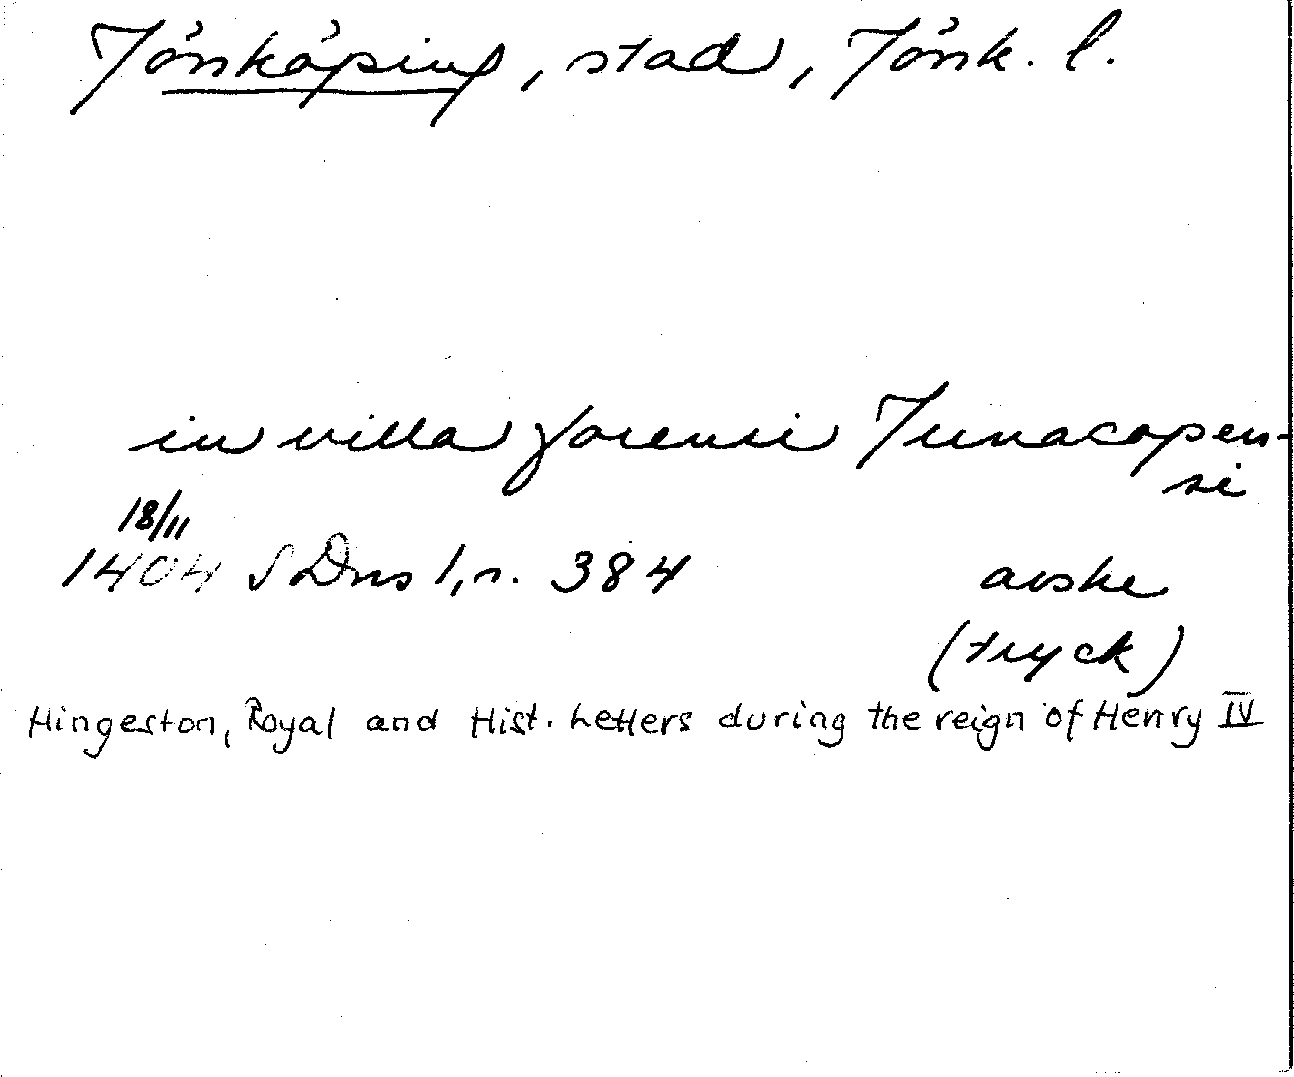 Jönköping, stad, Jönk. l.
in villa forensi Junacopen-
si
18/11
1404 SDns 1, n. 384 avskr
(tryck)
Hingeston, Royal and Hist. Letters during the reign of Henry IV